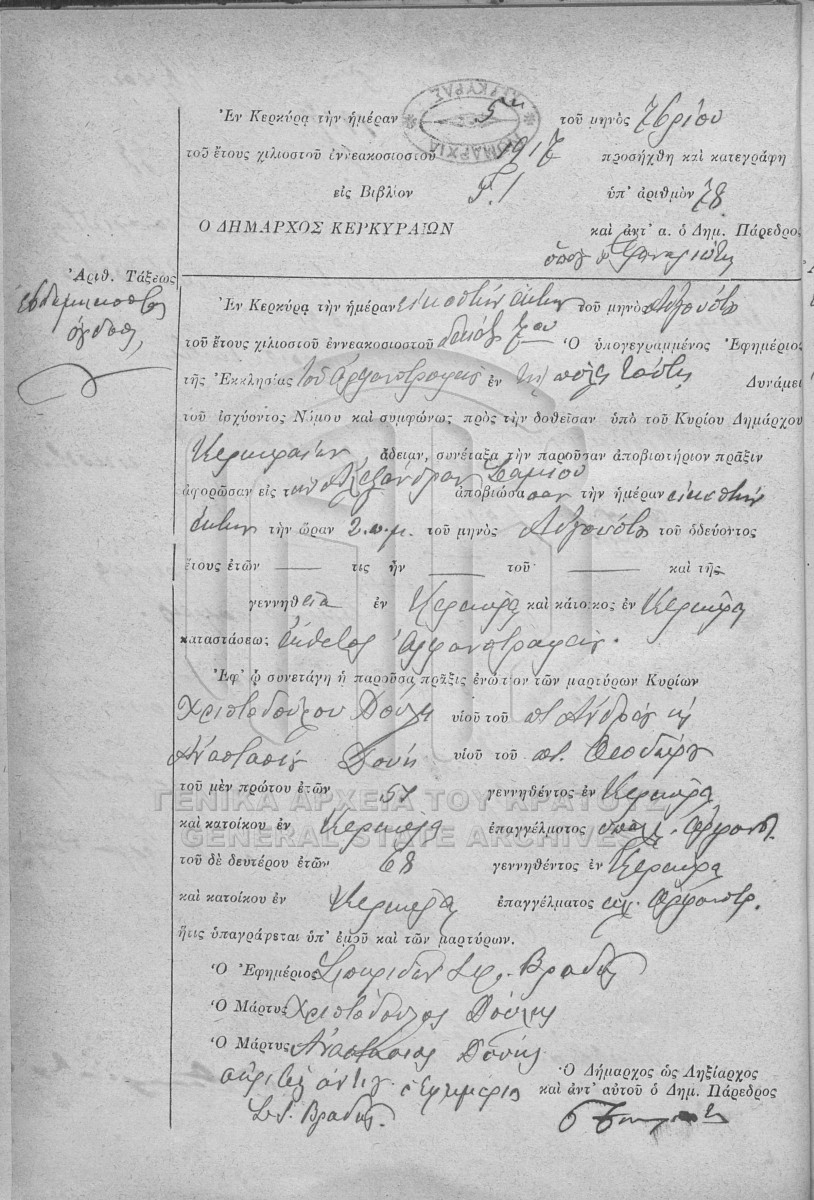 Ἐν Κερκύρᾳ τὴν ἡμέραν 5ην τοῦ μηνὸς 7βρίου
τοῦ ἔτους χιλιοστοῦ ἐννεακοσιοστοῦ 1917 προσήχθη καὶ κατεγράφη
εἰς Βιβλίον ὑπ' ἀριθμὸν 78
Ο ΔΗΜΑΡΧΟΣ ΚΕΡΚΥΡΑΙΩΝ καὶ ἀντ' α. ὁ Δημ. Πάρεδρος
ΝΟΜΑΡΧΙΑ ΚΕΡΚΥΡΑΣ
Ἀριθ. Τάξεως
ὀγδοη
Ἐν Κερκύρᾳ τὴν ἡμέραν εἰκοστὴν ἕκτην τοῦ μηνὸς Αὐγούστου
τοῦ ἔτους χιλιοστοῦ ἐννεακοσιοστοῦ Ὁ ὑπογεγραμμένος Ἐφημέριος
τῆς Ἐκκλησίας τοῦ Ὀρφανοτροφείου ἐν τῇ πόλει ταύτῃ Δυνάμει
τοῦ ἰσχύοντος Νόμου καὶ συμφώνως πρὸς τὴν δοθεῖσαν ὑπὸ τοῦ Κυρίου Δημάρχου
Κερκυραίων, ἄδειαν, συνέταξα τὴν παροῦσαν ἀποβιωτήριον πρᾶξιν
ἀφορῶσαν εἰς τὴν Ἀλεξάνδραν ἀποβιώσασαν τὴν ἡμέραν εἰκοστὴν
ἕκτην τὴν ὥραν 2 π.μ. τοῦ μηνὸς Αὐγούστου τοῦ ὁδεύοντος
ἔτους ἐτῶν — τις ἦν — τοῦ — καὶ τῆς
γεννηθεῖσα ἐν Κερκύρᾳ καὶ κάτοικος ἐν Κερκύρᾳ
καταστάσεως ἔκθετος Ὀρφανοτροφείου.
Ἐφ' ᾧ συνετάγη ἡ παροῦσα πρᾶξις ἐνώπιον τῶν μαρτύρων Κυρίων
Χριστοδούλου Δούλη υἱοῦ τοῦ π. Ἀνδρέα κ
Ἀναστασίου υἱοῦ τοῦ π. Θεοδώρου
τοῦ μὲν πρώτου ἐτῶν 57 γεννηθέντος ἐν Κερκύρᾳ
ΓΕΝΙΚΑ ΑΡΧΕΙΑ ΤΟΥ ΚΡΑΤΟΥΣ
καὶ κατοίκου ἐν Κερκύρᾳ ἐπαγγέλματος ὑπάλ. Ὀρφανοτ.
GENERAL STATE ARCHIVES
τοῦ δὲ δευτέρου ἐτῶν 68 γεννηθέντος ἐν Κερκύρᾳ
καὶ κατοίκου ἐν Κερκύρᾳ ἐπαγγέλματος Ὀρφανοτρ.
ἥτις ὑπαγράφεται ὑπ' ἐμοῦ καὶ τῶν μαρτύρων.
Ὁ Ἐφημέριος Σπυρίδων Βραδῆς
Ὁ Μάρτυς Χριστόδουλος Δούλης
Ὁ Μάρτυς Ἀναστάσιος
ὁ Ἐφημέριος
Ὁ Δήμαρχος ὡς Ληξίαρχος
καὶ ἀντ' αὐτοῦ ὁ Δημ. Πάρεδρος